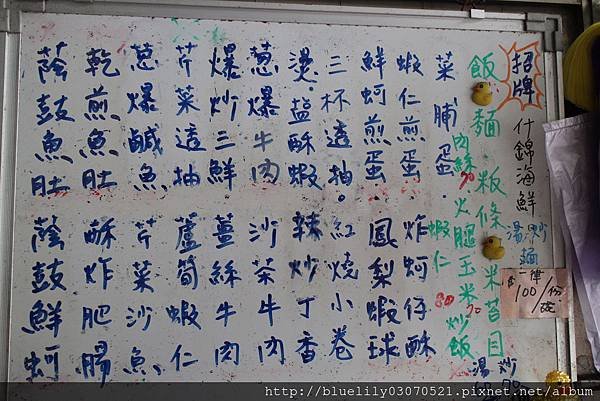 招牌
什錦海鮮
湯 炒
麵
一律
100/份
飯 麵 粄條 米苔目
湯 炒
肉絲70 火腿玉米炒飯 70
蝦仁 80
菜脯蛋.
蝦仁煎蛋. 炸蚵仔酥
鮮蚵煎蛋. 鳳梨蝦球
三杯透抽. 紅燒小卷
燙.鹽酥蝦 辣炒丁香
蔥爆牛肉 沙茶牛肉
爆炒三鮮 薑絲牛肉
芹菜透抽 蘆筍蝦仁
蔥爆鹹魚 芹菜沙魚
乾煎魚肚 酥炸肥腸
蔭鼓魚肚 蔭鼓鮮蚵
http://bluelily03070521.pixnet.net/album